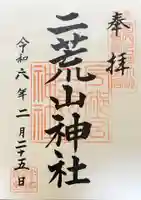 奉拝
二荒山神社
令和六年二月二十五日